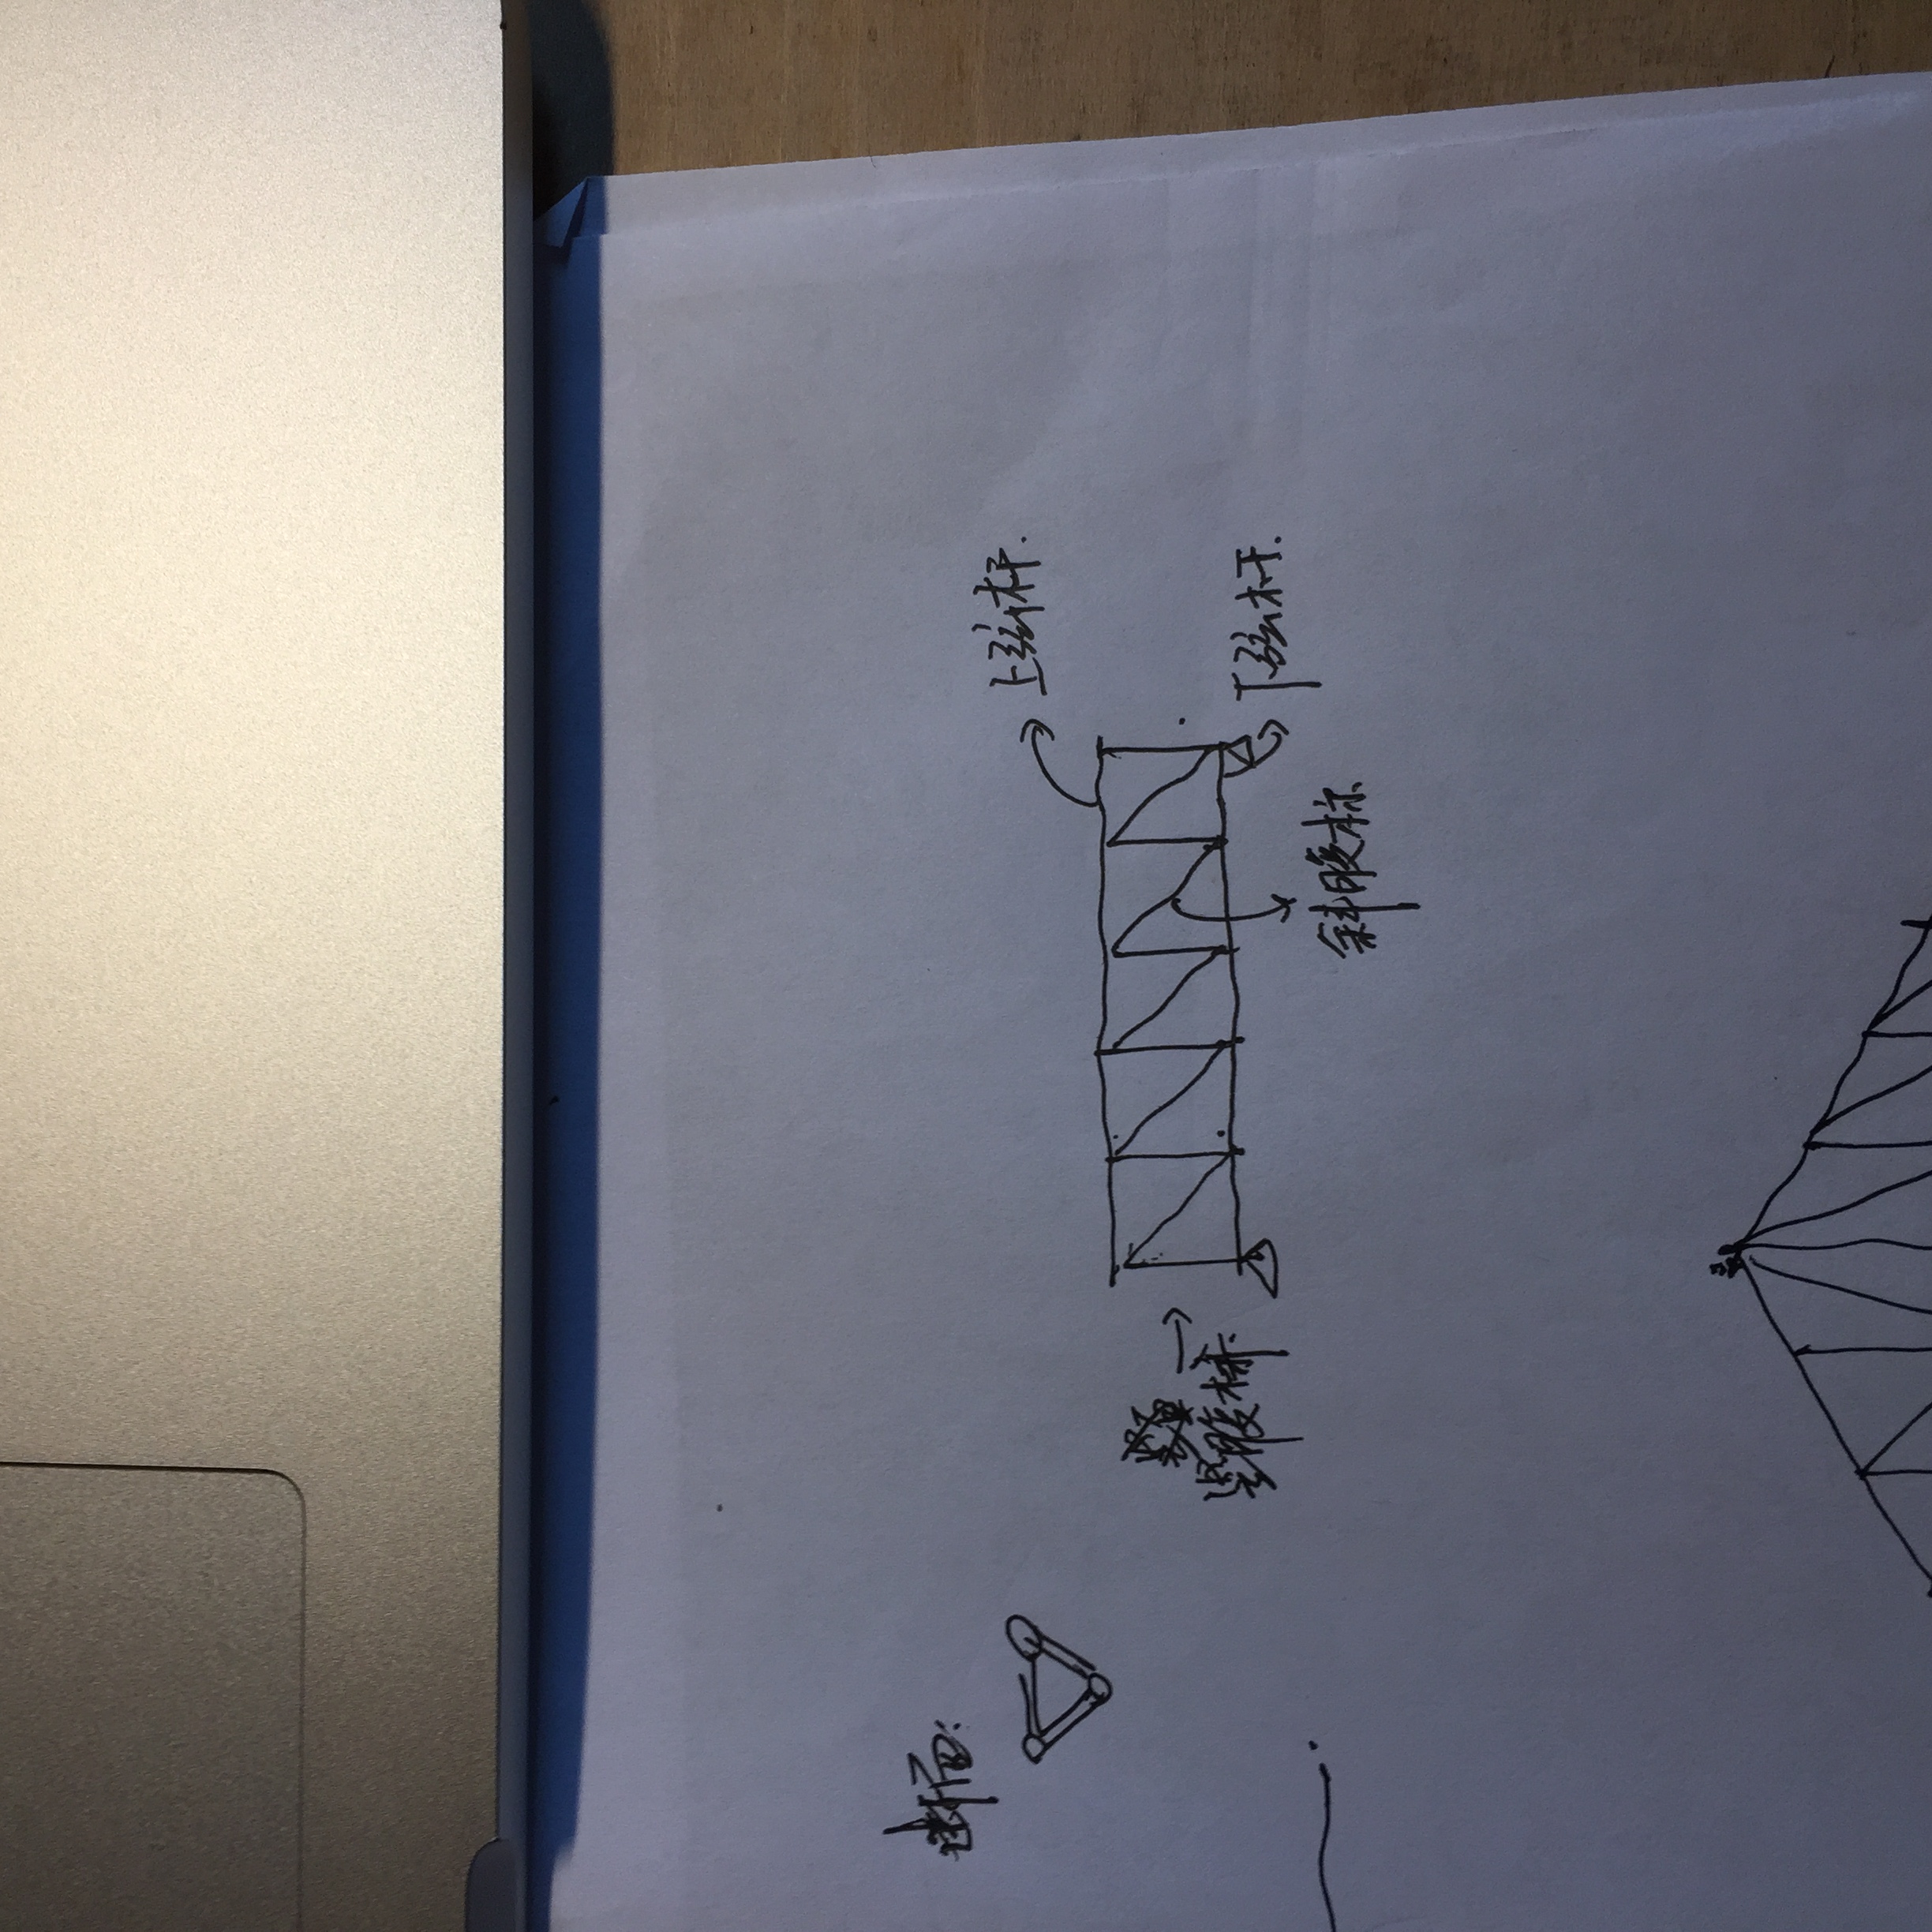 断面:
上弦杆.
竖腹标.
下弦杆.
斜腹标